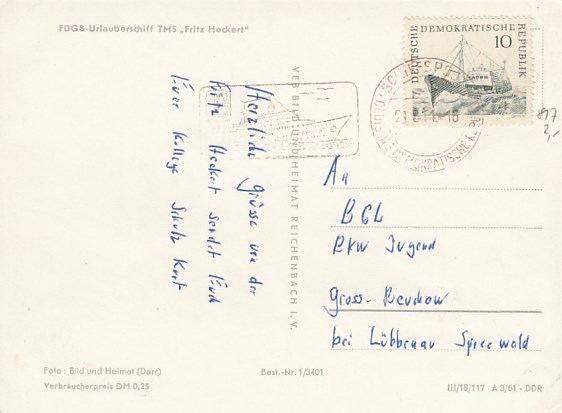 FDGB-Urlauberschiff TMS „Fritz Heckert"
DEUTSCHE DEMOKRATISCHE REPUBLIK
10
SCHIFFSPOST
DEUTSCHE DEMOKRATISCHE
897
2,-
Herzliche Grüsse von der
Fritz Heckert sendet Euch
Euer Kollege Schulz Kurt
VEB BILD UND HEIMAT REICHENBACH i. V.
An
BGL
BKW Jugend
Gross-Beuchow
bei Lübbenau Spreewald
Foto: Bild und Heimat (Darr)
Verbraucherpreis DM 0,25
Best.-Nr. 1/3401
III/18/117 A 3/61 - DDR